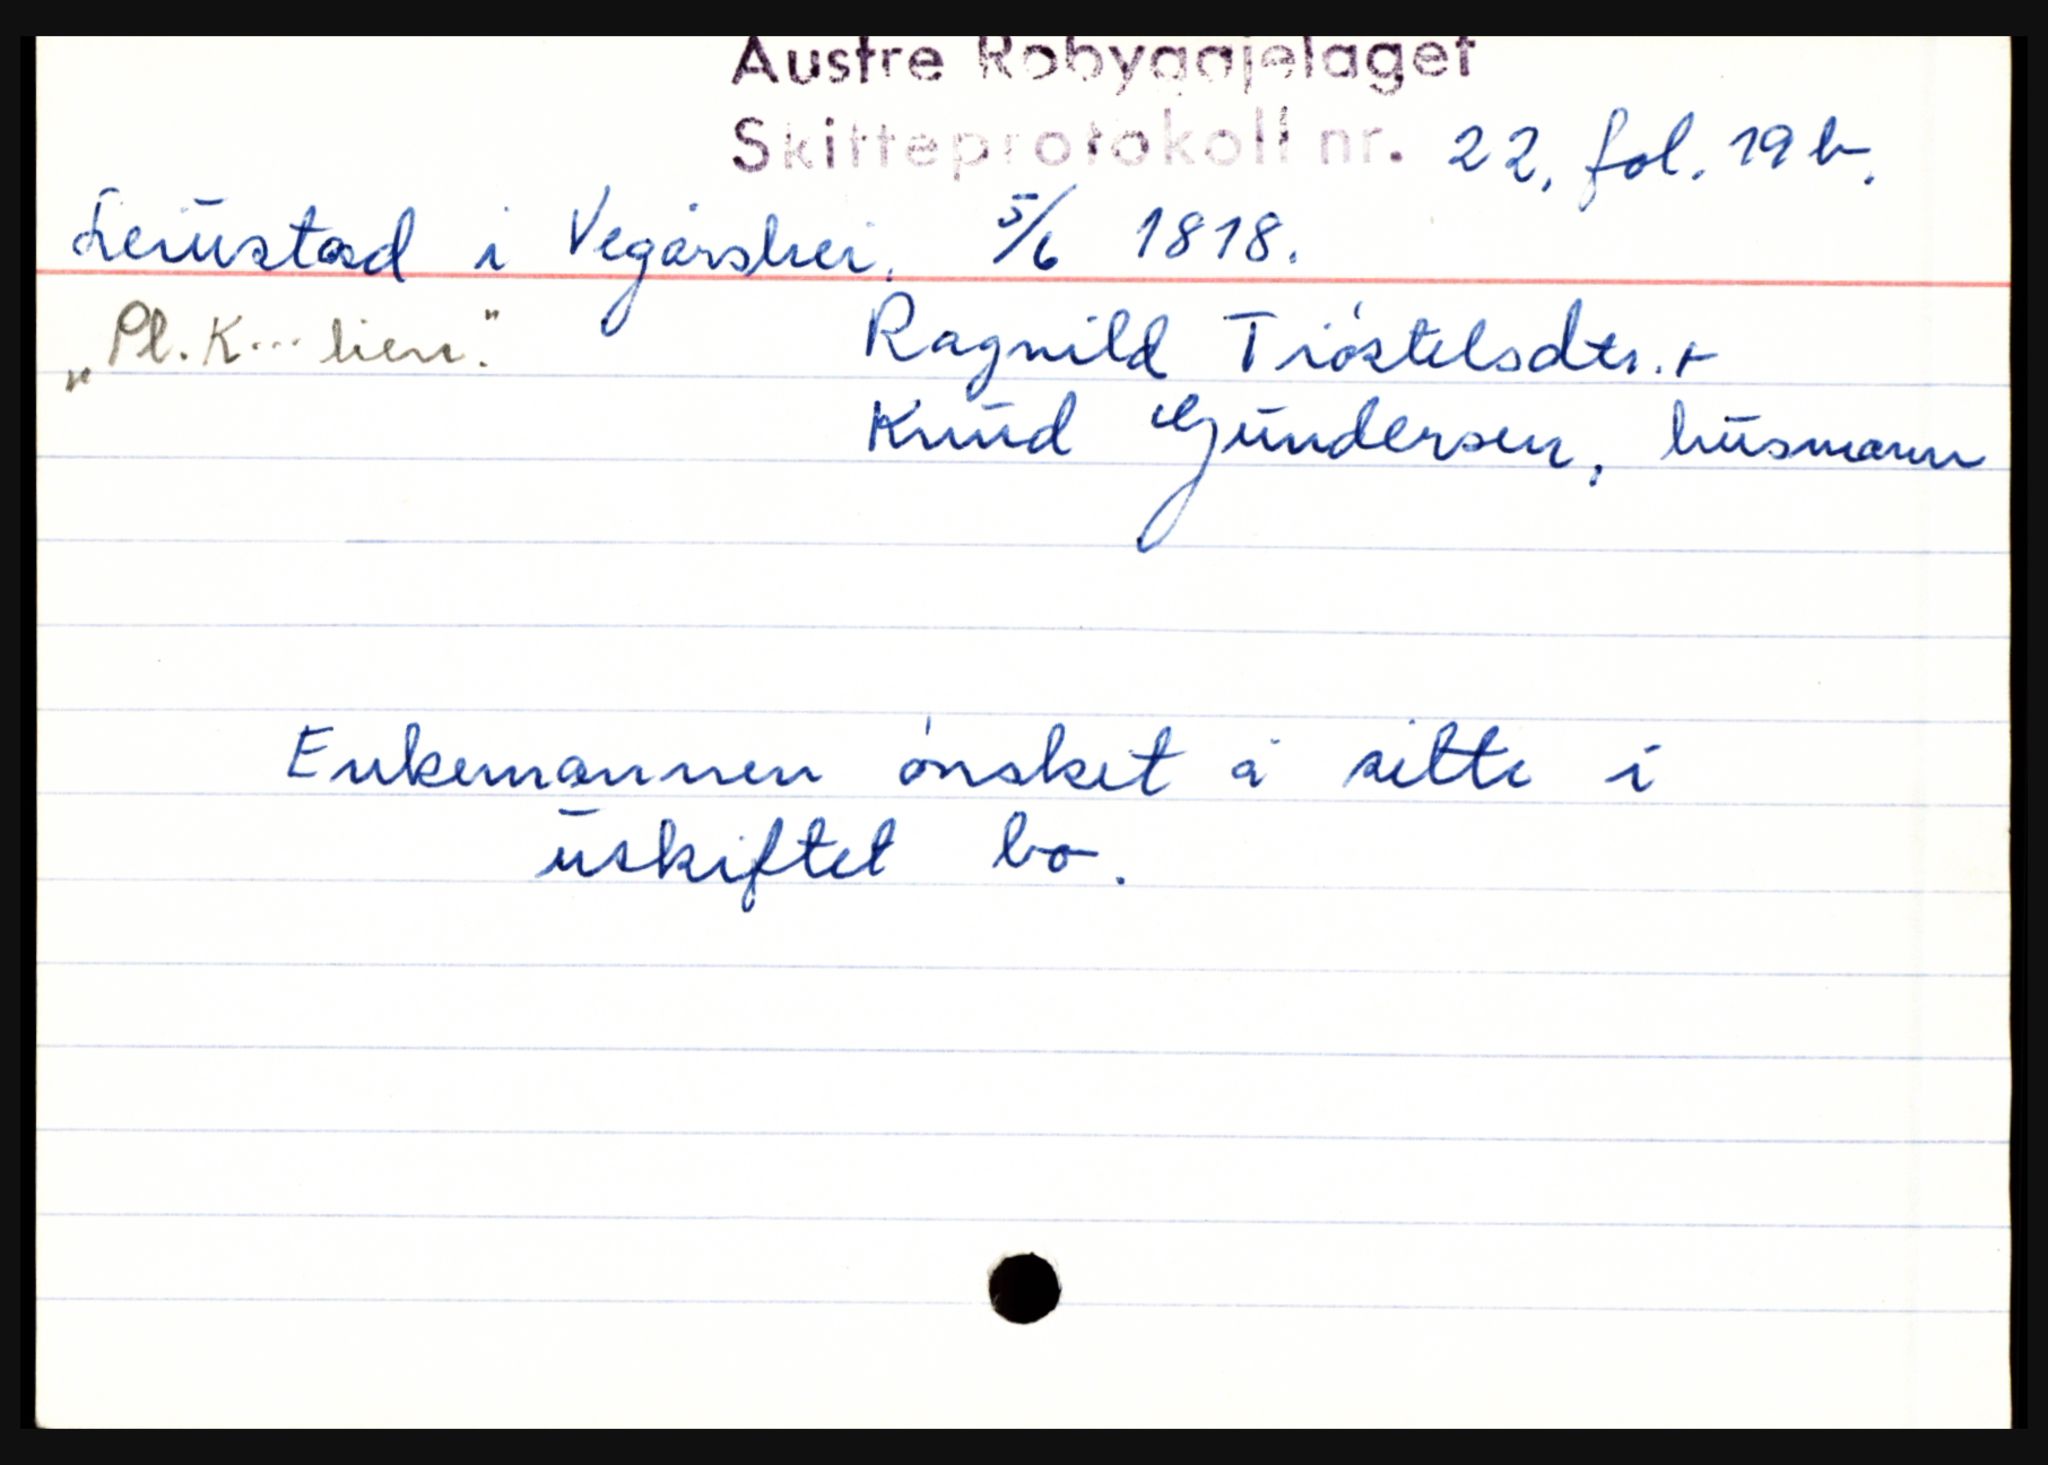 Austre Robyggjelaget
Skifteprotokoll nr. 22, fol. 19 b.
Leiustad i Vegårshei. 5/6 1818.
„Pl. K... lien."
Ragnild Tióstelsdtr. +
Knud Gundersen, husmann
Enkemannen ønsket å sitte i
uskiftet bo.